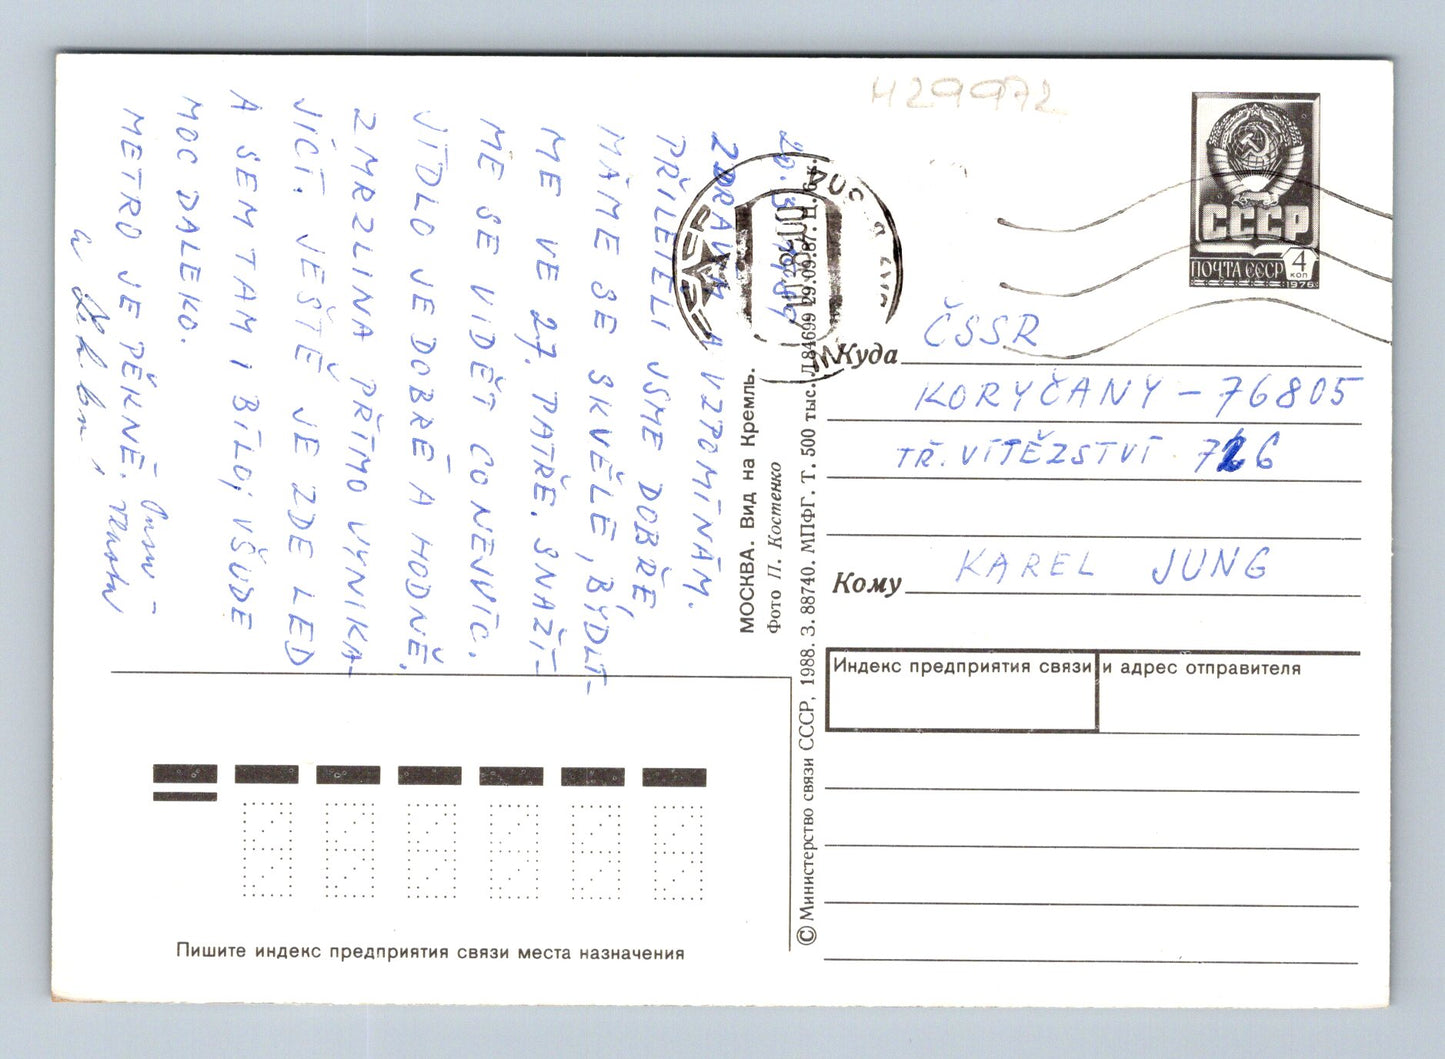 20.3.1989
ZDRAVÍM A VZPOMÍNÁM.
PŘILETĚLI JSME DOBŘE,
MÁME SE SKVĚLE, BYDLÍ-
ME VE 27. PATŘE. SNAŽÍ-
ME SE VIDĚT CO NEJVÍC.
JÍDLO JE DOBRÉ A HODNĚ,
ZMRZLINA PŘÍMO VYNIKA-
JÍCÍ. JEŠTĚ JE ZDE LED
A SEM TAM I BÍLO, VŠUDE
MOC DALEKO.
METRO JE PĚKNÉ.
a
Н29972
СССР
ПОЧТА СССР
4
КОП
1976
Куда
ČSSR
KORYČANY - 76805
TŘ. VÍTĚZSTVÍ 726
Кому
KAREL JUNG
Индекс предприятия связи и адрес отправителя
МОСКВА. Вид на Кремль.
Фото П. Костенко
© Министерство связи СССР, 1988. З. 88740. МПФГ. Т. 500 тыс. Л84699 29.09.87. Ц. 6 к.
Пишите индекс предприятия связи места назначения